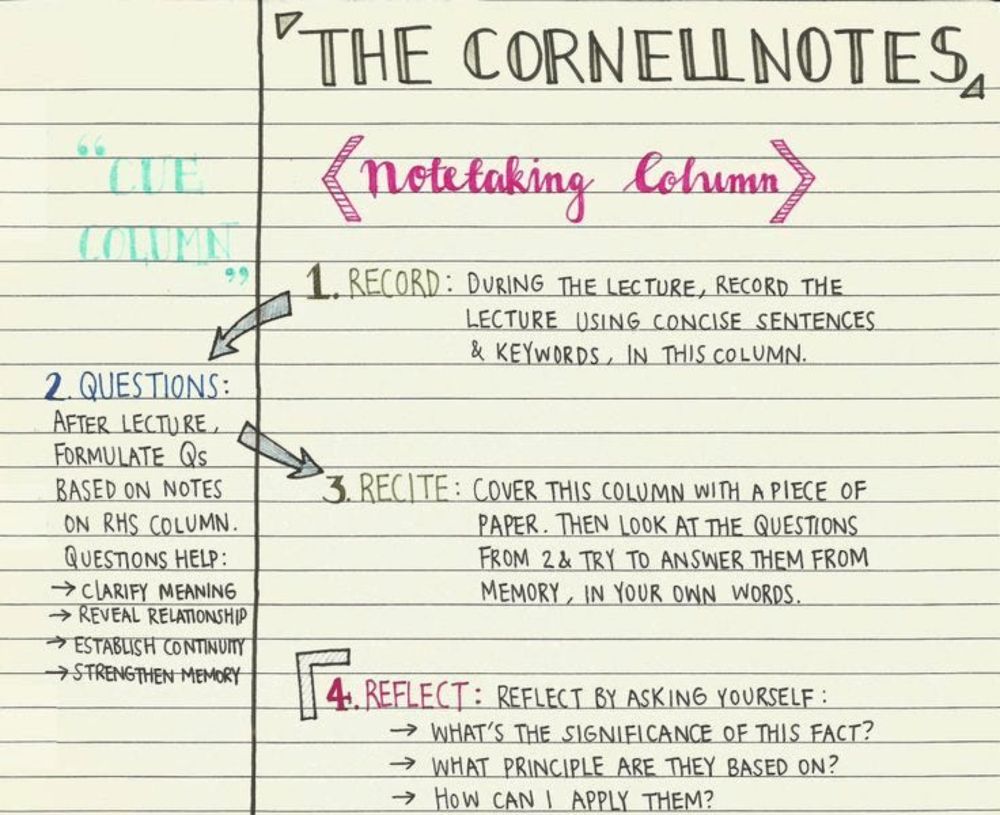 THE CORNELL NOTES
“CUE
COLUMN”
Notetaking Column
1. RECORD: DURING THE LECTURE, RECORD THE
LECTURE USING CONCISE SENTENCES
& KEYWORDS, IN THIS COLUMN.
2. QUESTIONS:
AFTER LECTURE,
FORMULATE Qs
BASED ON NOTES
ON RHS COLUMN.
QUESTIONS HELP:
→ CLARIFY MEANING
→ REVEAL RELATIONSHIP
→ ESTABLISH CONTINUITY
→ STRENGTHEN MEMORY
3. RECITE: COVER THIS COLUMN WITH A PIECE OF
PAPER. THEN LOOK AT THE QUESTIONS
FROM 2 & TRY TO ANSWER THEM FROM
MEMORY, IN YOUR OWN WORDS.
4. REFLECT: REFLECT BY ASKING YOURSELF:
→ WHAT'S THE SIGNIFICANCE OF THIS FACT?
→ WHAT PRINCIPLE ARE THEY BASED ON?
→ HOW CAN I APPLY THEM?